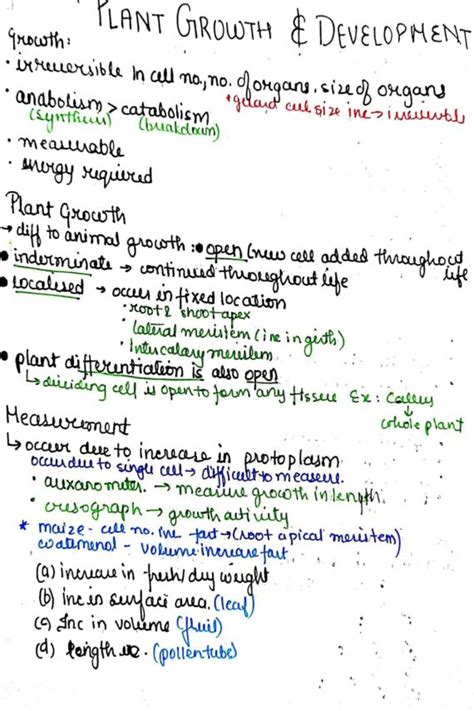 PLANT GROWTH & DEVELOPMENT
Growth:
• irreversible in cell no., no. of organs. size of organs
• anabolism > catabolism
*guard cell size inc →
(synthesis) (breakdown)
• measurable
• energy required
Plant Growth
→ diff to animal growth : • open (new cell added throughout life
• indeterminate → continued throughout life
• Localised → occurs in fixed location
• root & shoot apex
• lateral meristem (inc in girth)
• Intercalary meristem
• plant differentiation is also open
↳ dividing cell is open to form any tissue Ex: Callus
↓
whole plant
Measurement
↳ occur due to increase in protoplasm
occur due to single cell → difficult to measure
• auxanometer. → measure growth in length.
• cresograph → growth activity
* maize - cell no. inc fast → (root apical meristem)
watermenol - volume increase fast
(a) increase in fresh/dry weight
(b) inc in surface area. (leaf)
(c) Inc in volume (fruit)
(d) length inc. (pollen tube)